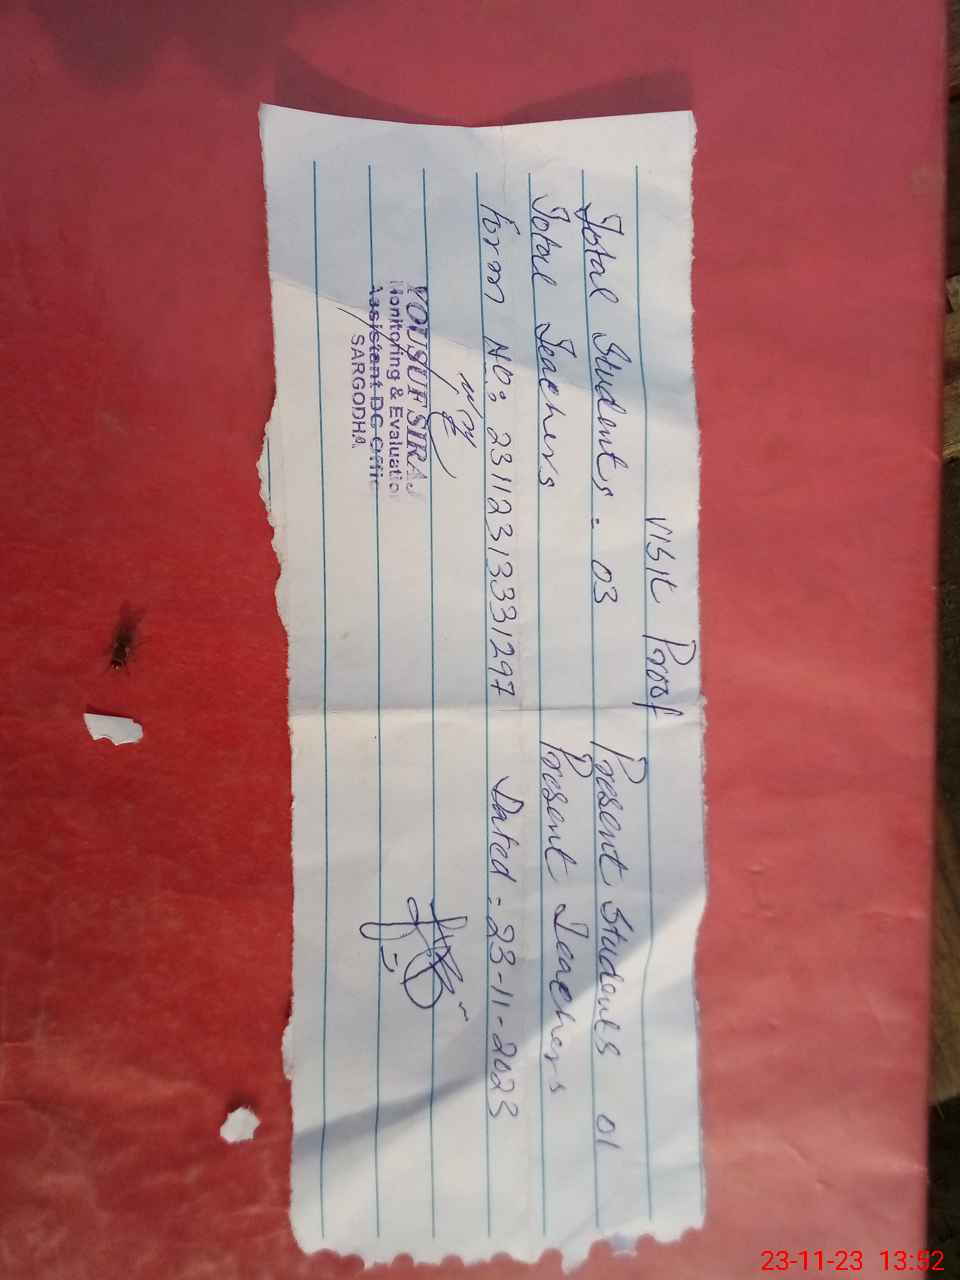 Visit Proof
Total Students = 03 Present Students 01
Total Teachers Present Teachers
Form No: 231123133331297 Dated = 23-11-2023
YOUSUF SIRAJ
Monitoring & Evaluation
Assistant DC Office
SARGODHA
23-11-23 13:52